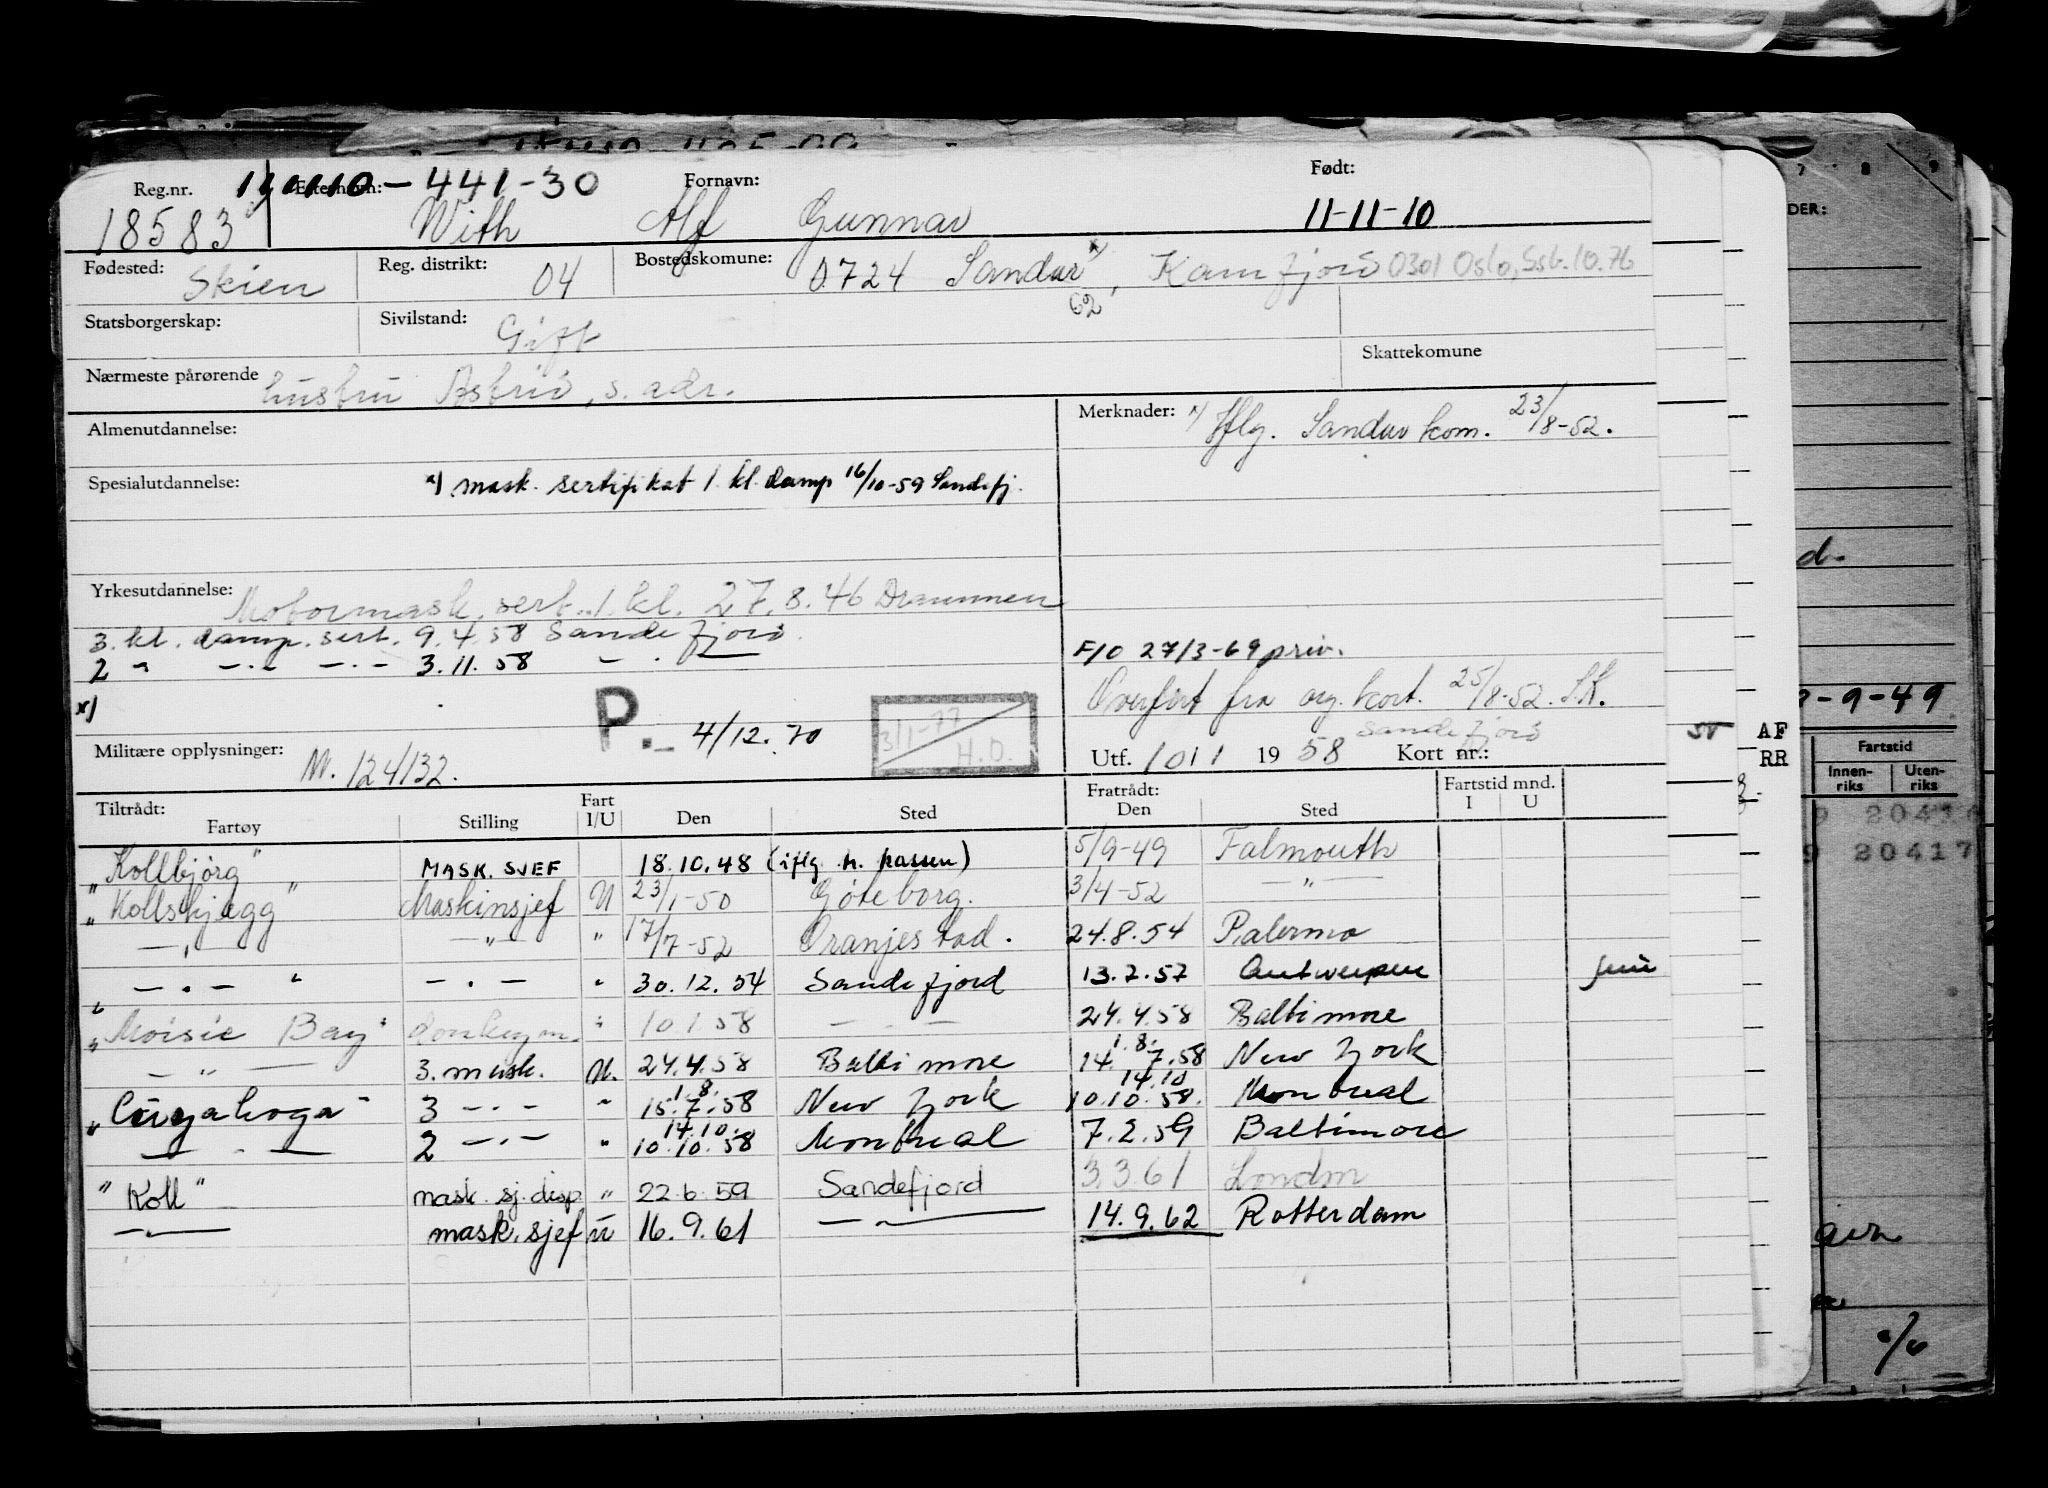 Reg.nr. Etternavn: 111110-441-30 Fornavn: Født:
18583 With Alf Gunnar 11-11-10
Fødested: Skien Reg. distrikt: 04 Bostedskomune: 0724 Sandar x) , Kamfjord 0301 Oslo, Ssb. 10.76
62
Statsborgerskap: Sivilstand: Gift
Skattekomune
Nærmeste pårørende hustru Astrid, s. adr.
Almenutdannelse:
Merknader: x) Iflg. Sandar kom. 23/8-52.
Spesialutdannelse: x) mask. sertifikat 1. kl. damp 16/10-59 Sandefj.
Yrkesutdannelse: Motormask. sert. 1. kl. 27.8.46 Drammen
3. kl. damp. sert. 9.4.58 Sandefjord.
2 " -.- -.- 3.11.58 - . -
F/O 27/3-69 priv.
x)
Overført fra org. kort. 25/8-52. S.K.
P. 4/12.70 3/1-77 H.O.
Sandefjord
Militære opplysninger: M. 124/132.
Utf. 10/1 1958 Kort nr.:
Tiltrådt: Fartøy Stilling Fart I/U Den Sted Fratrådt: Den Sted Fartstid mnd. I U
"Kollbjörg" MASK. SJEF 18.10.48 (iflg. h. passen) 5/9-49 Falmouth
"Kollskjegg" Maskinsjef U 23/1-50 Göteborg. 3/4-52 - " -
- " - - " - " 17/7-52 Oranjestad. 24.8.54 Palermo
" - . - " - . - " 30.12.54 Sandefjord 13.2.57 Antwerpen
"Moisie Bay" donkeym. " 10.1.58 - . - 24.4.58 Baltimore
- " - 3. mask. U. 24.4.58 Baltimore 14.7.58 1.8. New York
"Cuyahoga" 3 -.- " 15.7.58 1.8. New York 10.10.58. 14.10 Montreal
- . - 2 -.- " 10.10.58 14.10. Montreal 7.2.59 Baltimore
"Koll" mask. sj. disp. " 22.6.59 Sandefjord 3.3.61 London
- . - mask. sjef u 16.9.61 - " - 14.9.62 Rotterdam
DER:
7 8 9
d.
-9-49
AF
RR
Fartstid
Innen-
riks
Uten-
riks
20416
20417